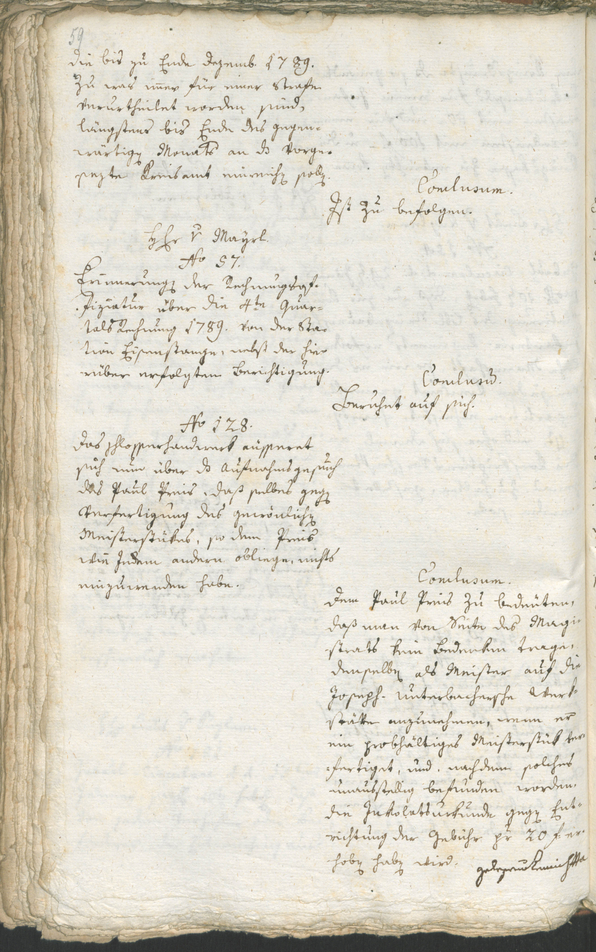 59
die bis zu Ende Dezemb. 1789.
zu was immer für einer Strafe
verurtheilet worden sind,
längstens bis Ende des gegen-
wärtigen Monats an das vorge-
sezte Kreisamt einreichen solle.
Conclusum.
Ist zu befolgen.
Hr v Mayrl
No 57.
Erinnerung der Rechnungsof-
fiziatur über die 4te Quar-
talsRechnung 1789. von der Sta-
tion Eisenstange, nebst der hie-
rüber erfolgten Berichtigung.
Conclusum.
Beruhet auf sich.
No 128.
Das Schlosserhandwerk äusseret
sich nun über das Aufnahmsgesuch
des Paul Preis, daß selbes gegen
Verfertigung des gewöhnlichen
Meisterstückes, so dem Preis
wie jedem andern obliege, nichts
einzuwenden habe.
Conclusum.
Dem Paul Preis zu bedeuten,
daß man von Seite des Magi-
strats kein Bedenken trage,
denselben als Meister auf die
Joseph. Unterbachersche Werk-
stätte anzunehmen, wenn er
ein probhältiges Meisterstück ver-
fertiget, und, nachdem solches
unausstellig befunden worden,
die Inkolatsurkunde gegen Ent-
richtung der Gebühr pr 20 f er-
hoben haben wird.